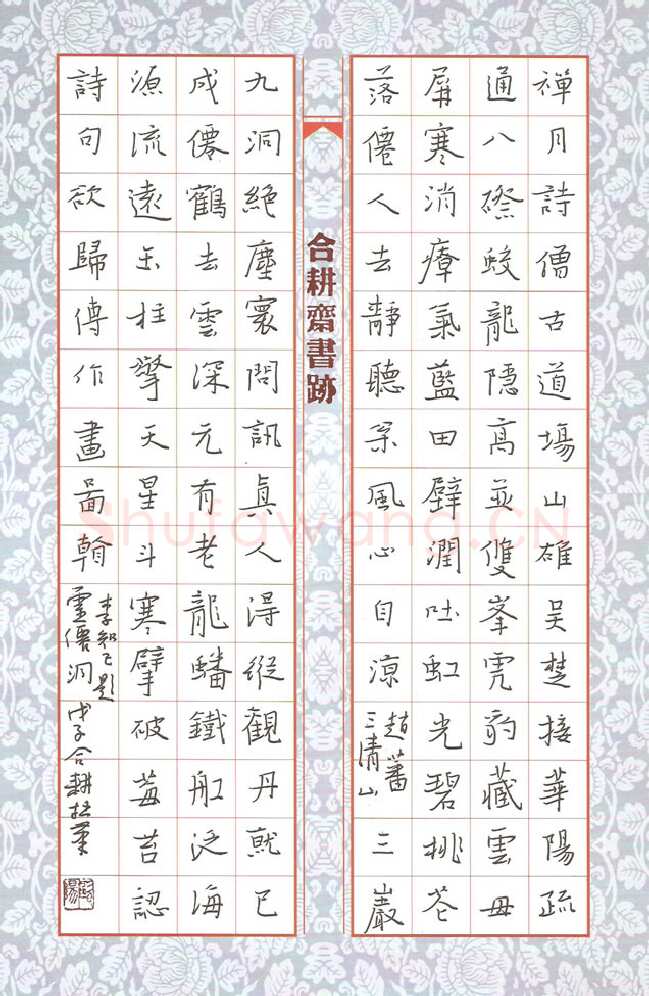 禪月詩僧古道場山雄吳楚接華陽疏
通八磜蛟龍隱高並雙峯虎豹藏雲毋
屏寒消瘴氣藍田璧潤吐虹光碧桃花
落僊人去靜聽枀風心自涼 趙蕃 三清山 三巖
合耕齋書跡
九洞絕塵寰問訊真人得縱觀丹就已
成僊鶴去雲深元有老龍蟠鐵舡泛海
源流遠玉柱擎天星斗寒擘破莓苔認
詩句欲歸傳作畫啚翰 李知己題 靈僊洞 戊子合耕
Shufawang.CN